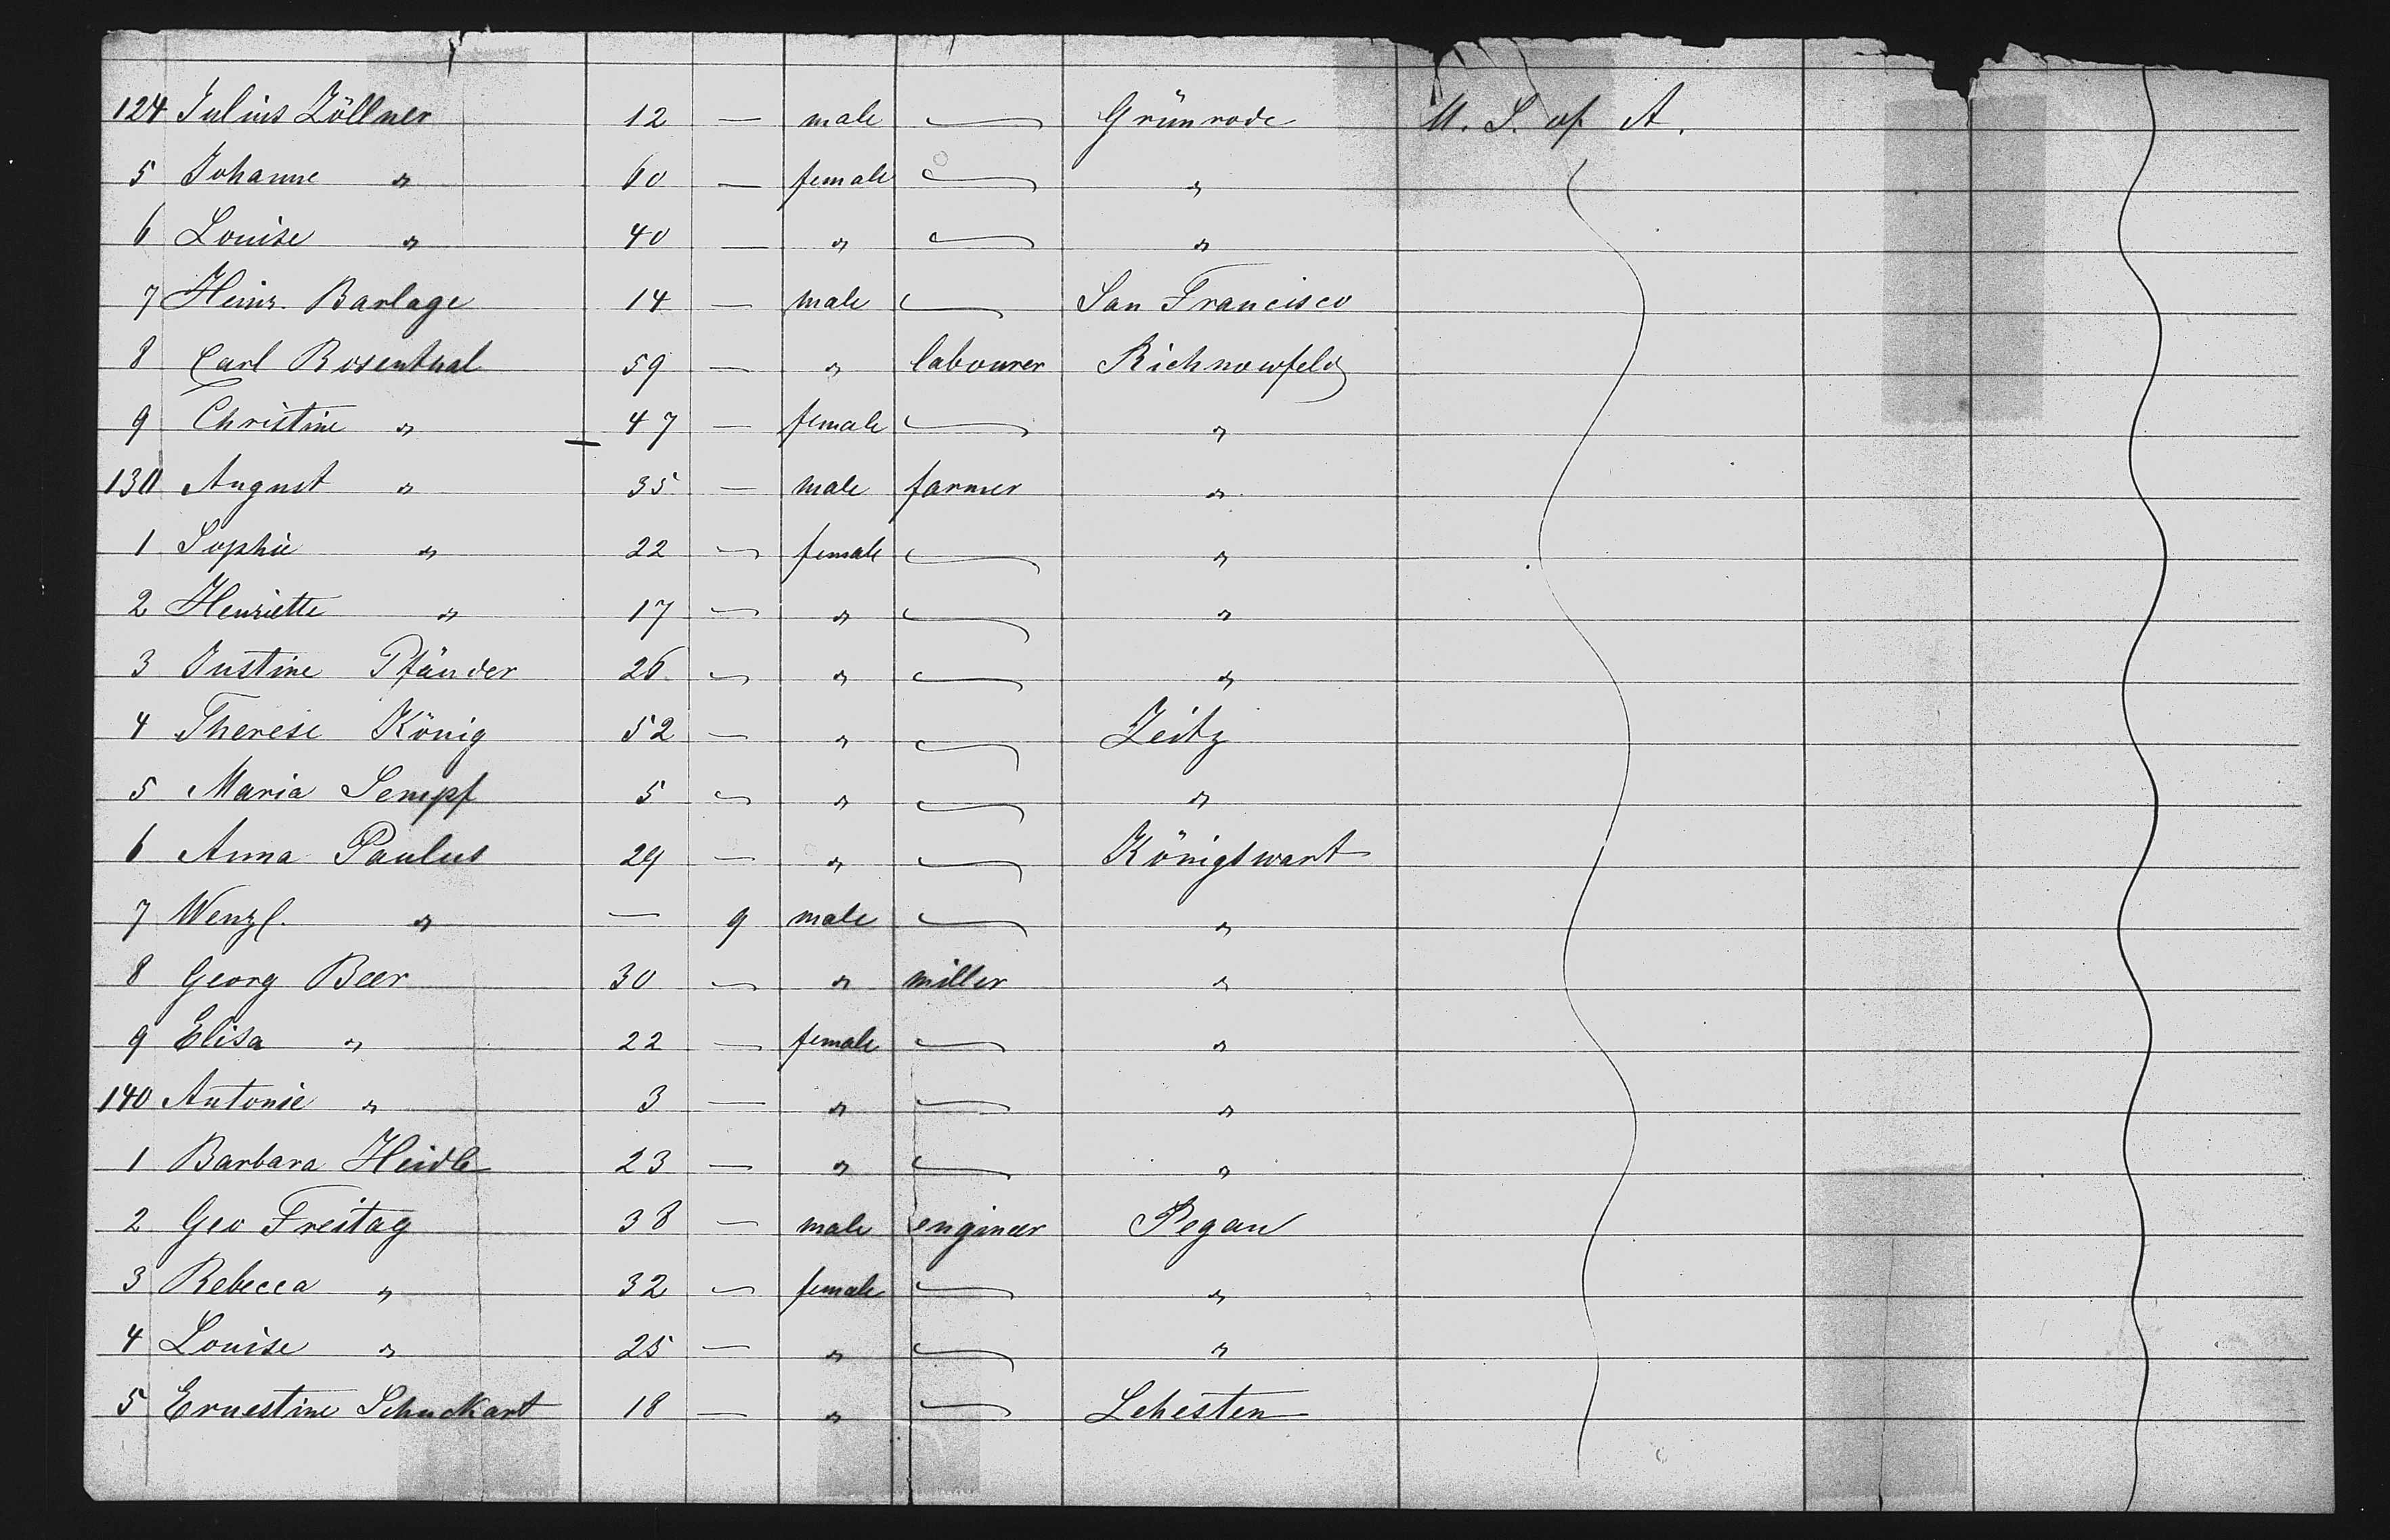 124 Julius Zöllner 12 — male — Grünrode U. S. of A.
5 Johanne " 60 — female — "
6 Louise " 40 — " — "
7 Heinr. Barlage 14 — male — San Francisco
8 Carl Rosenthal 59 — " labourer Richnowfeld
9 Christine " 47 — female — "
130 August " 35 — male farmer "
1 Sophie " 22 — female — "
2 Henriette " 17 — " — "
3 Justine Pfänder 26 — " — "
4 Therese König 52 — " — Zeitz
5 Maria Sempf 5 — " — "
6 Anna Paulus 29 — " — Königswart
7 Wenzl. " — 9 male — "
8 Georg Beer 30 — " miller "
9 Elisa " 22 — female — "
140 Antonie " 3 — " — "
1 Barbara Heidle 23 — " — "
2 Geo Freitag 38 — male engineer Pegau
3 Rebecca " 32 — female — "
4 Louise " 25 — " — "
5 Ernestine Schuckart 18 — " — Lehesten